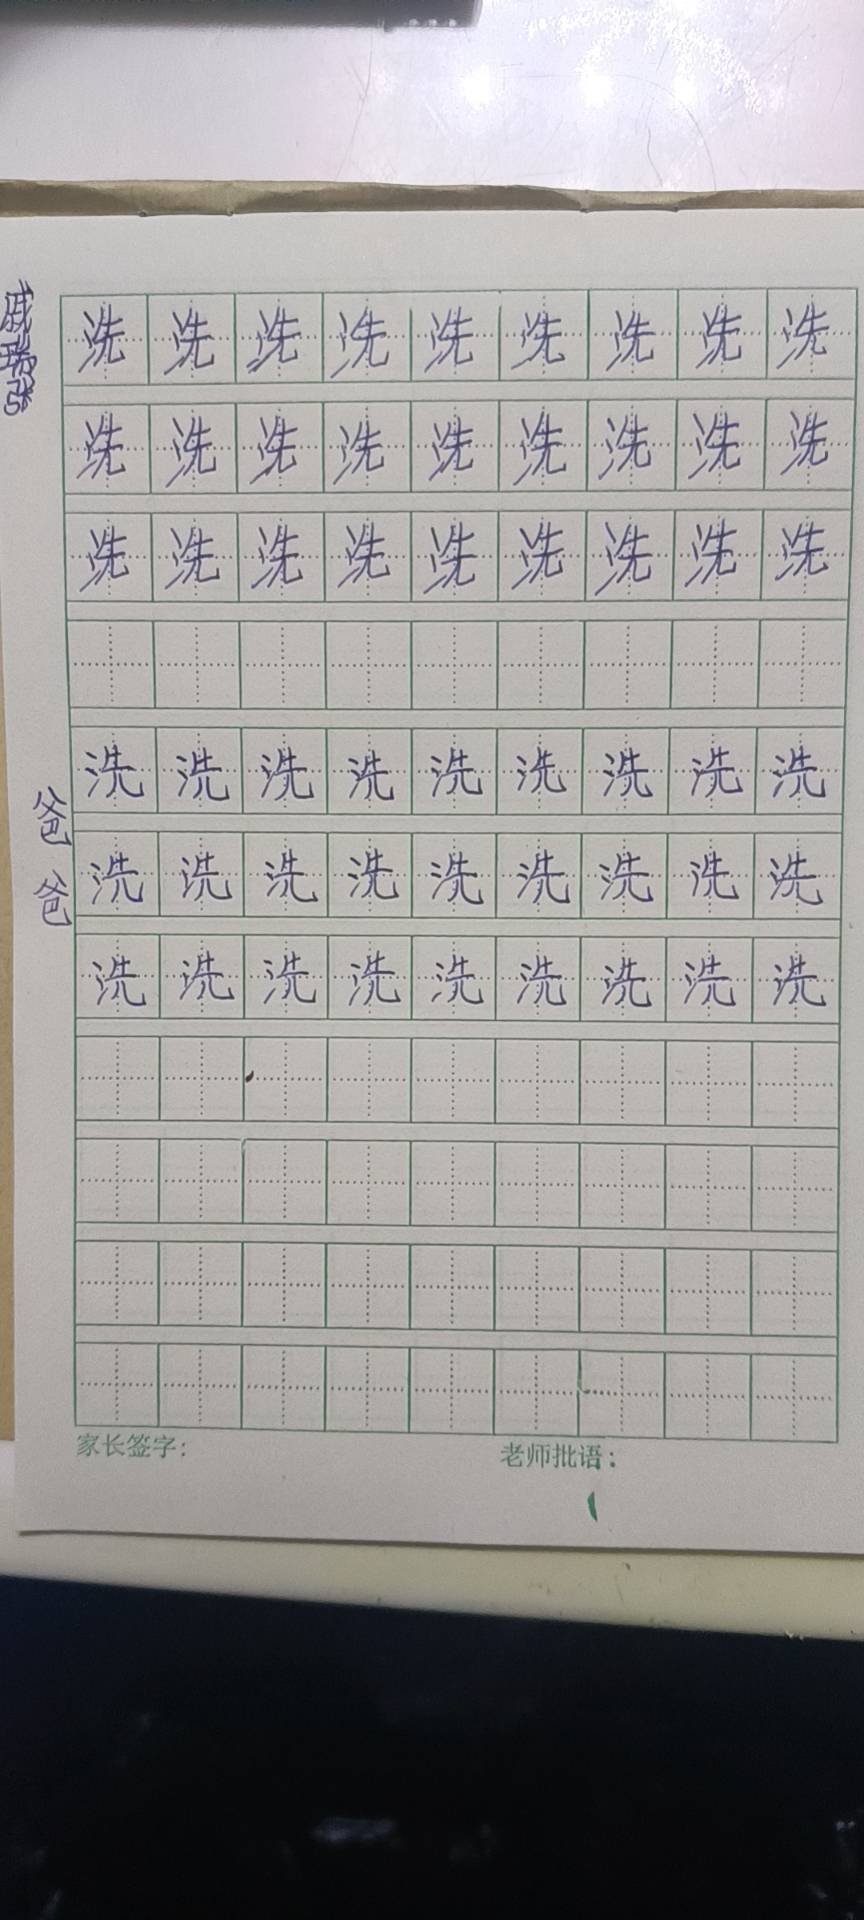 洗洗洗洗洗洗洗洗洗
洗洗洗洗洗洗洗洗洗
洗洗洗洗洗洗洗洗洗
爸爸
洗洗洗洗洗洗洗洗洗
洗洗洗洗洗洗洗洗洗
洗洗洗洗洗洗洗洗洗
家长签字：
老师批语：